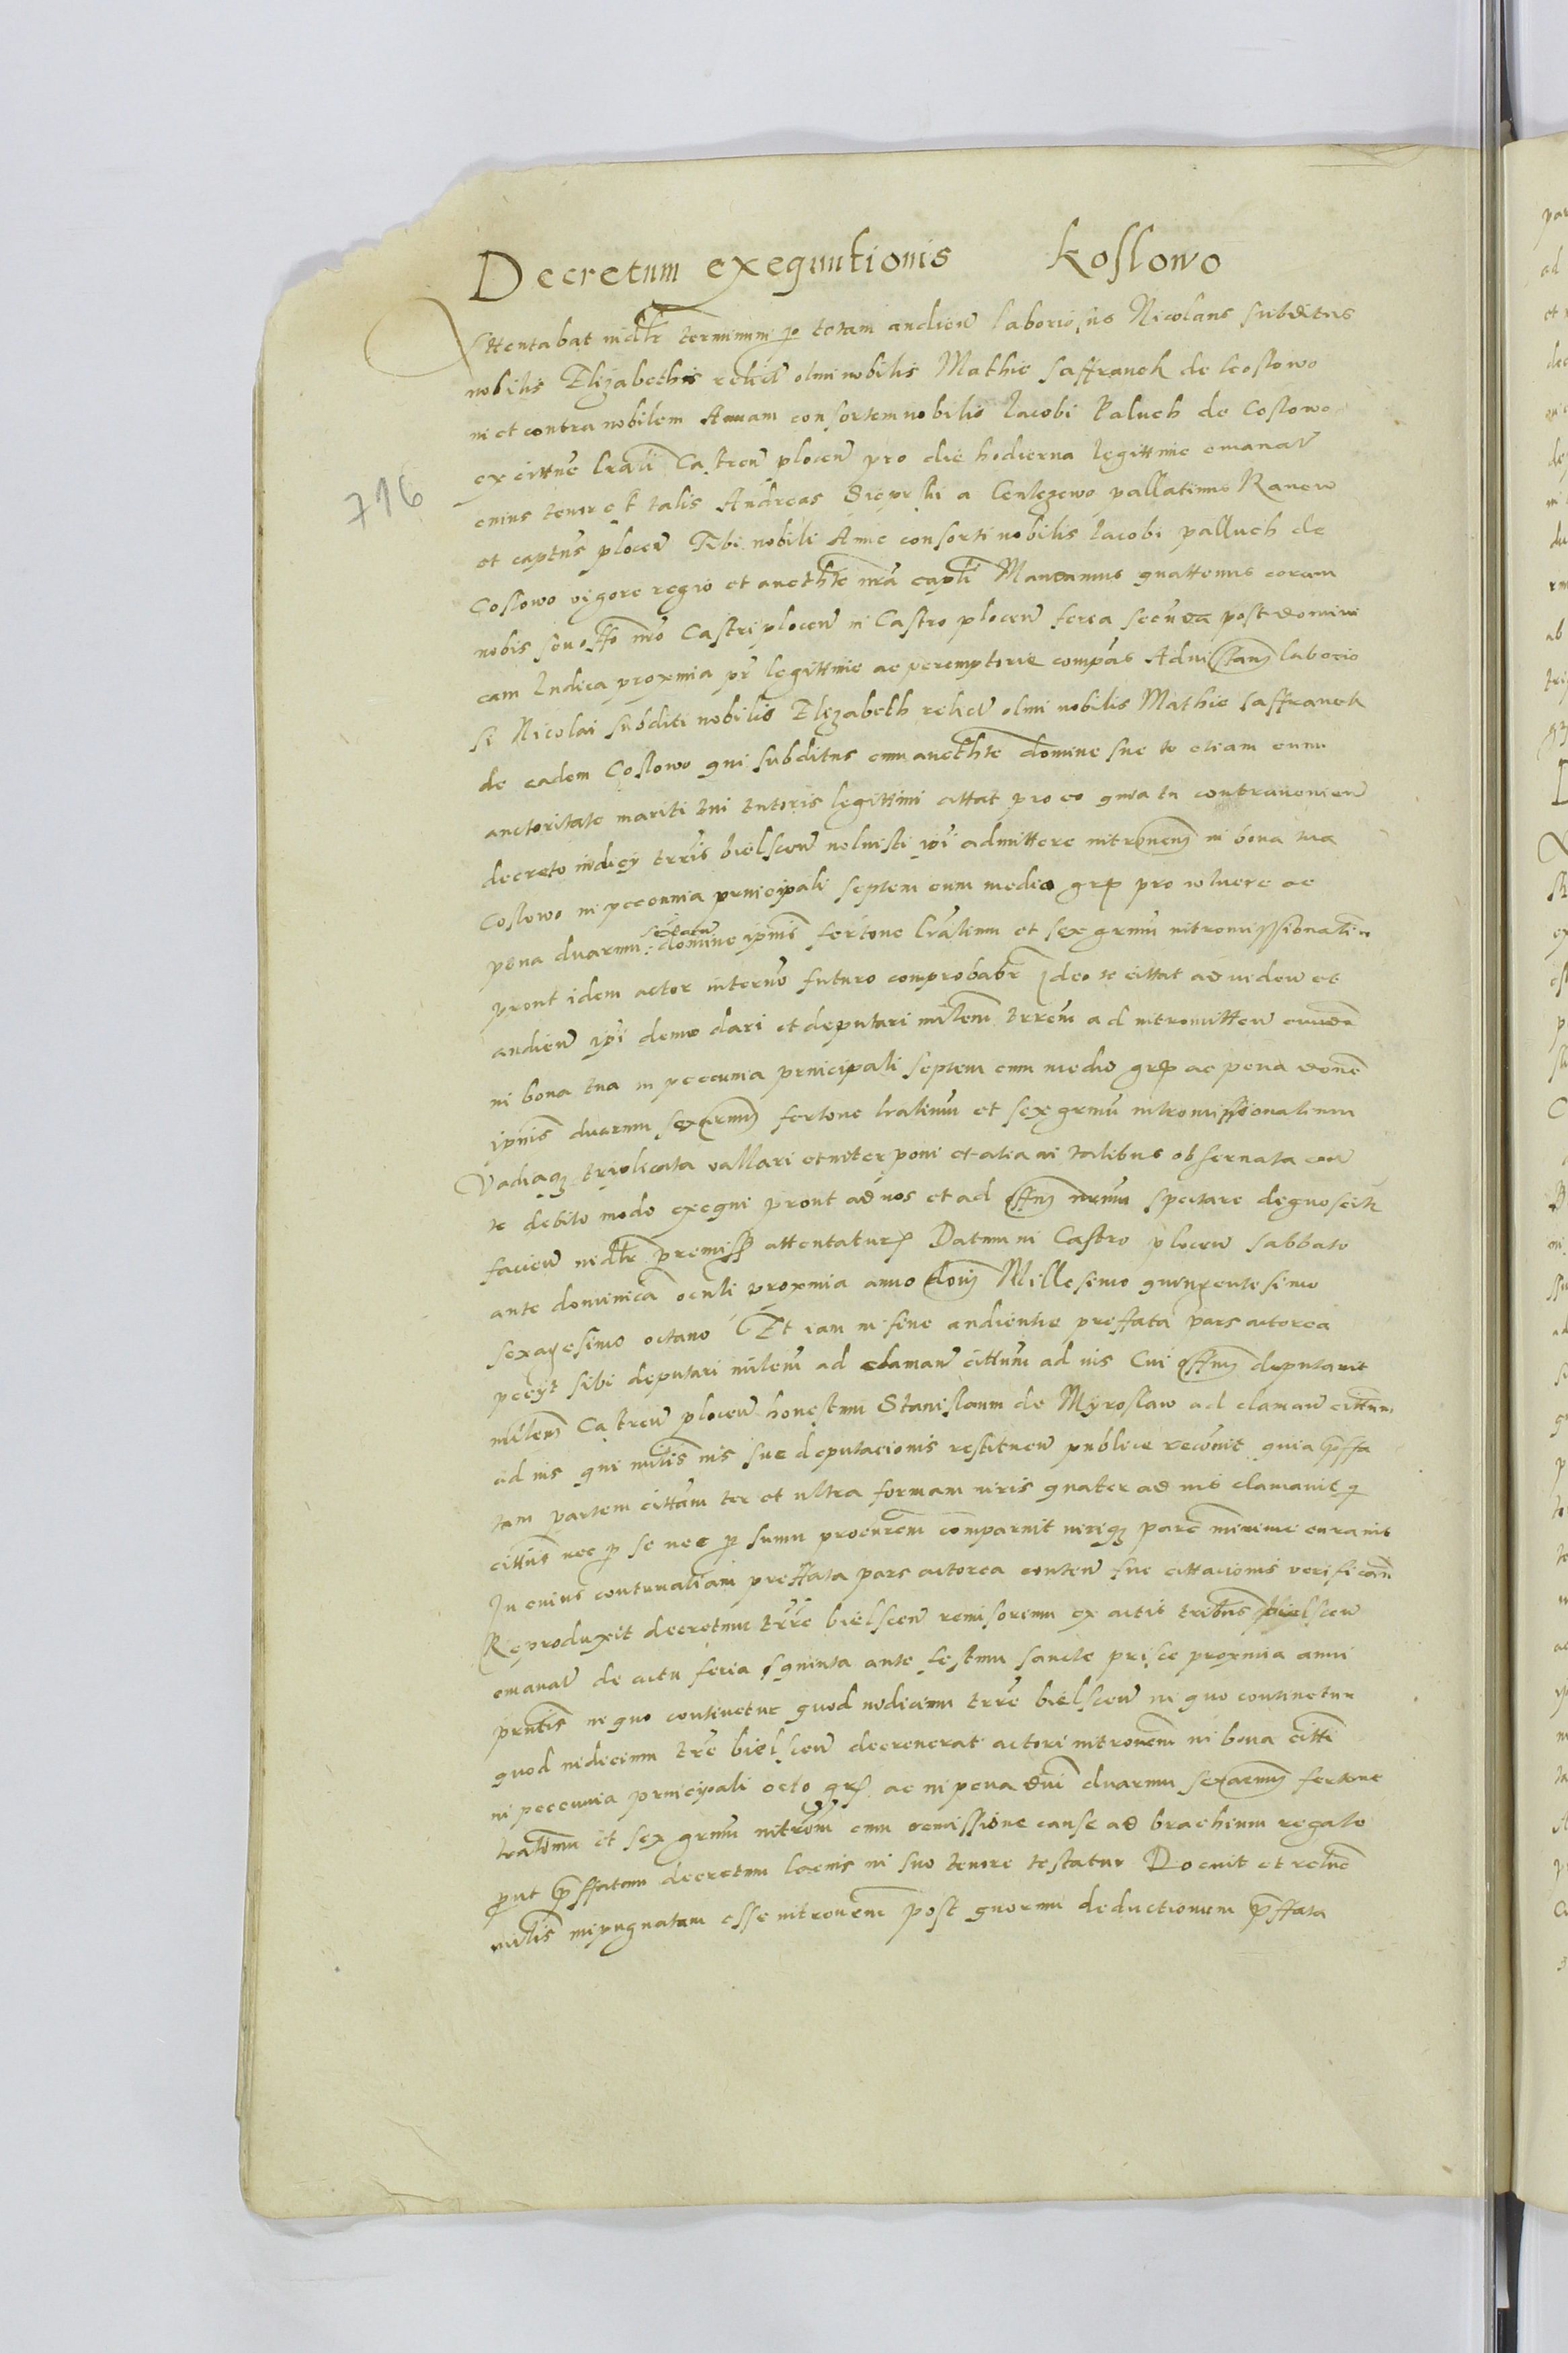 Decretum exequutionis Koslowo
Attentabat iudlr terminum p totam audien laboriosus Nicolaus subditus
nobilis Elizabethis relict olmi nobilis Mathie Saffranek de Coslowo
in et contra nobilem Annam consortem nobilis Iacobi Paluch de Coslowo
ex cittne lrali Castren plocen pro die hodierna legittime emanat
cuius tenor est talis Andreas Sieprski a pallatinus Raven
et captus plocen Tibi nobili Anne consorti nobilis Iacobi palluch de
Coslowo vigore regio et aucthte nra capli Mandamus quattenus coram
nobis seu offo nro Castri plocen in Castro plocen feria secunda post domini
cam Iudica proxmia pr legittime ac peremptorie compas Ad instam laborio
si Nicolai subditi nobilis Elizabeth relict olmi nobilis Mathie Saffranek
de eadem Coslowo qui subditus cum aucthte domine sue te etiam cum
auctoritate mariti tui tutoris legittimi cittat pro eo quia tu contravenien
decreto iudicy trris bielscen noluisti ipi admittere intronem in bona tua
Coslowo in peccunia principali septem cum medio grp pro
pena duarum domine ipius fertone lralium et sex grmu intromissionaliu
prout idem actor in termo futuro comprobabr Ideo te cittat ad viden et
audien ipi demo dari et deputari milem trrem ad intromitten eunde
in bona tua in peccunia principali septem cum medio grp ac pena
ipius duarum sexarum fertone lralium et sex grmu intromissionalium
Vadiaqz triplicata vallari et interponi et alia in talibus observata
te debito modo exequi prout ad nos et ad offm nrum spectare dignoscit
facien iudlr premiss attentatur Datum in Castro plocen sabbato
ante dominica oculi proxmia anno dom Millesimo quingentesimo
sexagesimo octavo Et iam in fine audientie preffata pars actorea
peciit sibi deputari milem ad claman cittum ad ius Cui offm deputavit
milem Castren plocen honestum Stanislaum de Myroslaw ad claman cittum
ad ius qui milis ius sue deputacionis restituen publice recouit quia preffa
tam partem cittam ter et ultra formam iuris quater ad ius clamavit q
cittus nec p se nec p suum procurem comparuit iuriqz pare minime curavit
In cuius contumaliam preffata pars actorea conten sue cittacionis verifican
Reproduxit decretum trre bielscen remisorium ex actis trribus bielscen
emanat de actu feria quinta ante festum sancte prisce proxmia anni
prntis in quo continetur quod iudicium trre bielscen in quo continetur
quod iudicium trre bielscen decreverat actori intronem in bona citti
in peccunia principali octo grp ac in pena dni duarum sexarum fertone
lralium et sex grmu introm cum remissione cause ad brachium regale
prout preffatum decretum lacius in suo tenore testatur Docuit et
milis inpugnatam esse intronem post quorum deductionem preffata
716